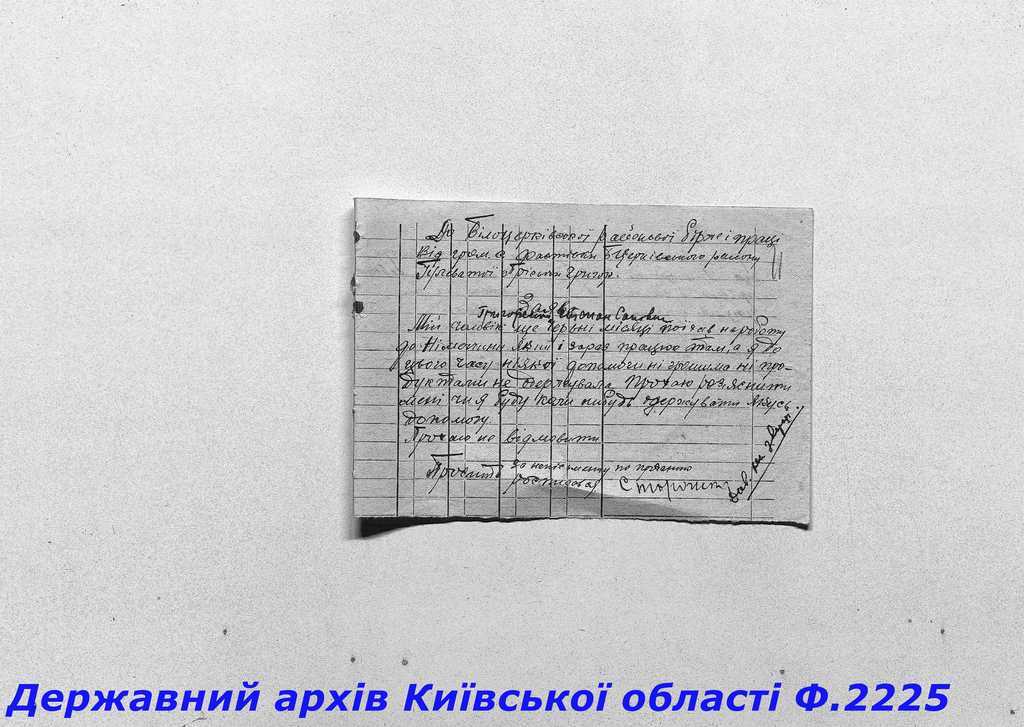 До Білоцерківської районової біржі праці
Від гром. с. Фастівки Б Церківського району
Григор.
Заява
Григор Степан Савович
Мій чоловік ще в червні місяці поїхав на роботу
до Німеччини який і зараз працює там, а я до
цього часу ніякої допомочи ні грошима ні про-
дуктами не одержувала Прохаю роз'яснити
мені чи я буду коли нибудь одержувати якусь
допомогу
Прохаю не відмовити
Просить за неписьменну по
росписався
Державний архів Київської області Ф.2225